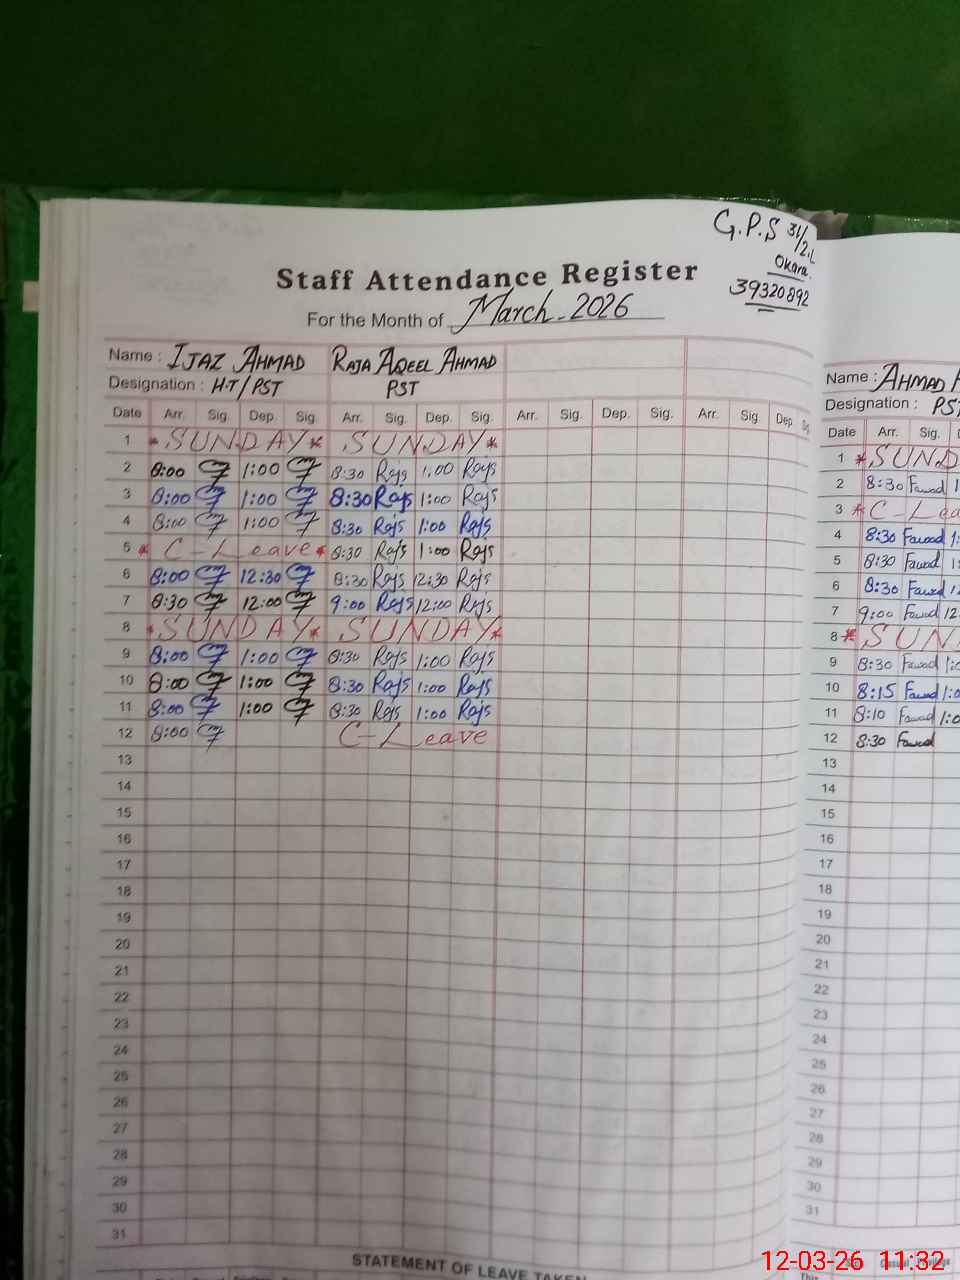 G.P.S 31/2.L
Okara.
39320892
Staff Attendance Register
For the Month of March-2026
Name : IJAZ AHMAD RAJA AQEEL AHMAD
Designation : H.T/PST PST
Date Arr. Sig. Dep. Sig. Arr. Sig. Dep. Sig. Arr. Sig. Dep. Sig. Arr. Sig. Dep.
1 * SUNDAY * SUNDAY *
2 8:00 1:00 8:30 Rajs 1:00 Rajs
3 8:00 1:00 8:30 Rajs 1:00 Rajs
4 8:00 1:00 8:30 Rajs 1:00 Rajs
5 * C-Leave * 8:30 Rajs 1:00 Rajs
6 8:00 12:30 8:30 Rajs 12:30 Rajs
7 8:30 12:00 9:00 Rajs 12:00 Rajs
8 * SUNDAY * SUNDAY *
9 8:00 1:00 8:30 Rajs 1:00 Rajs
10 8:00 1:00 8:30 Rajs 1:00 Rajs
11 8:00 1:00 8:30 Rajs 1:00 Rajs
12 8:00 C-Leave
13
14
15
16
17
18
19
20
21
22
23
24
25
26
27
28
29
30
31
STATEMENT OF LEAVE TAKEN
Name : AHMAD
Designation : PST
Date Arr. Sig.
1 * SUND
2 8:30 Fawad
3 * C-Lea
4 8:30 Fawad
5 8:30 Fawad
6 8:30 Fawad
7 9:00 Fawad 12
8 * SUN
9 8:30 Fawad
10 8:15 Fawad
11 8:10 Fawad
12 8:30 Fawad
13
14
15
16
17
18
19
20
21
22
23
24
25
26
27
28
29
30
31
12-03-26 11:32